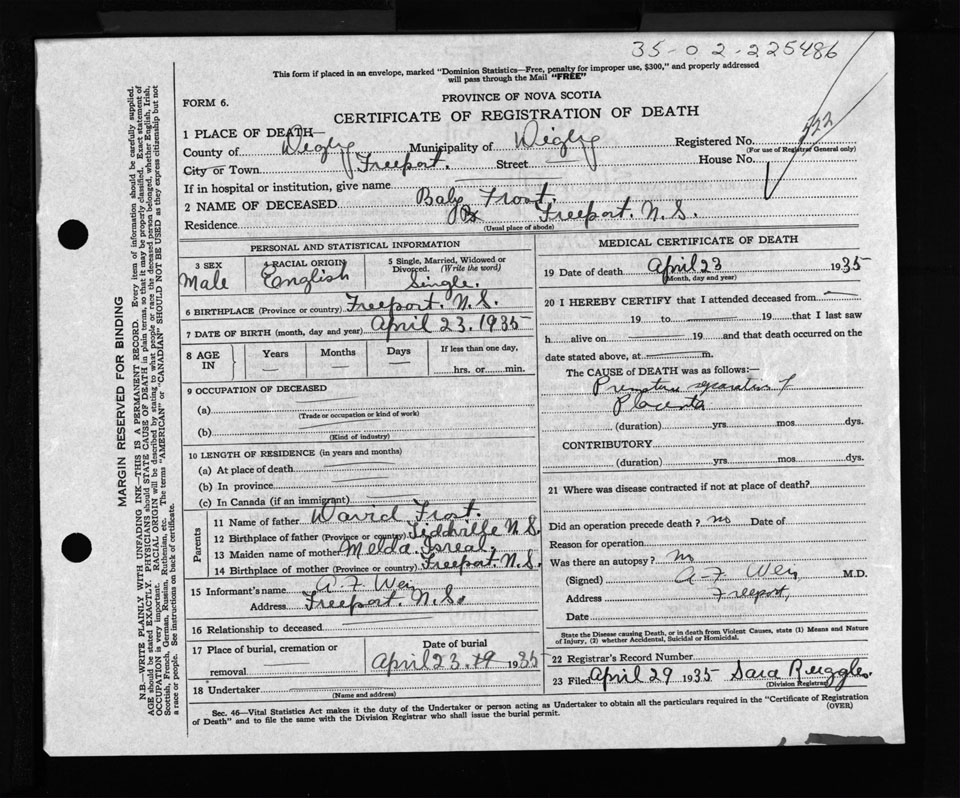 35-02-225486
This form if placed in an envelope, marked "Dominion Statistics—Free, penalty for improper use, $300," and properly addressed
will pass through the Mail "FREE"
FORM 6.
PROVINCE OF NOVA SCOTIA
CERTIFICATE OF REGISTRATION OF DEATH
522
1 PLACE OF DEATH—
County of Digby Municipality of Digby Registered No.
(For use of Registrar General only)
City or Town Freeport. Street House No.
If in hospital or institution, give name
2 NAME OF DECEASED Baby Frost.
Residence Freeport. N.S.
(Usual place of abode)
PERSONAL AND STATISTICAL INFORMATION
3 SEX 4 RACIAL ORIGIN 5 Single, Married, Widowed or
Divorced. (Write the word)
Male English Single.
6 BIRTHPLACE (Province or country) Freeport. N.S.
7 DATE OF BIRTH (month, day and year) April 23. 1935
8 AGE IN Years Months Days If less than one day,
hrs. or min.
9 OCCUPATION OF DECEASED
(a)
(Trade or occupation or kind of work)
(b)
(Kind of industry)
10 LENGTH OF RESIDENCE (in years and months)
(a) At place of death
(b) In province
(c) In Canada (if an immigrant)
Parents
11 Name of father David Frost.
12 Birthplace of father (Province or country) Tiddville N.S.
13 Maiden name of mother Melda Isreal.
14 Birthplace of mother (Province or country) Freeport. N.S.
15 Informant's name A F Weir
Address Freeport. N.S.
16 Relationship to deceased
17 Place of burial, cremation or
removal
Date of burial
April 23. 19 1935
18 Undertaker
(Name and address)
MEDICAL CERTIFICATE OF DEATH
19 Date of death April 23 1935
(Month, day and year)
20 I HEREBY CERTIFY that I attended deceased from
19 to 19 that I last saw
h alive on 19 and that death occurred on the
date stated above, at m.
The CAUSE of DEATH was as follows:
Premature separation of
Placenta
(duration) yrs. mos. dys.
CONTRIBUTORY
(duration) yrs. mos. dys.
21 Where was disease contracted if not at place of death?
Did an operation precede death? no Date of
Reason for operation
Was there an autopsy? no
(Signed) A F Weir M.D.
Address Freeport,
Date
State the Disease causing Death, or in death from Violent Causes, state (1) Means and Nature
of Injury, (2) whether Accidental, Suicidal or Homicidal.
22 Registrar's Record Number
23 Filed April 29 1935 Sara Ruggles.
(Division Registrar)
Sec. 46—Vital Statistics Act makes it the duty of the Undertaker or person acting as Undertaker to obtain all the particulars required in the "Certificate of Registration
of Death" and to file the same with the Division Registrar who shall issue the burial permit.
(OVER)
MARGIN RESERVED FOR BINDING
N.B.—WRITE PLAINLY WITH UNFADING INK—THIS IS A PERMANENT RECORD. Every item of information should be carefully supplied.
AGE should be stated EXACTLY. PHYSICIANS should STATE CAUSE OF DEATH in plain terms, so that it may be properly classified. Exact statement of
OCCUPATION is very important. RACIAL ORIGIN will be described by stating to what people or race the deceased person belonged, whether English, Irish,
Scottish, French, German, Russian, Ruthenian, etc. The terms "AMERICAN" or "CANADIAN" SHOULD NOT BE USED as they express citizenship but not
a race or people. See instructions on back of certificate.